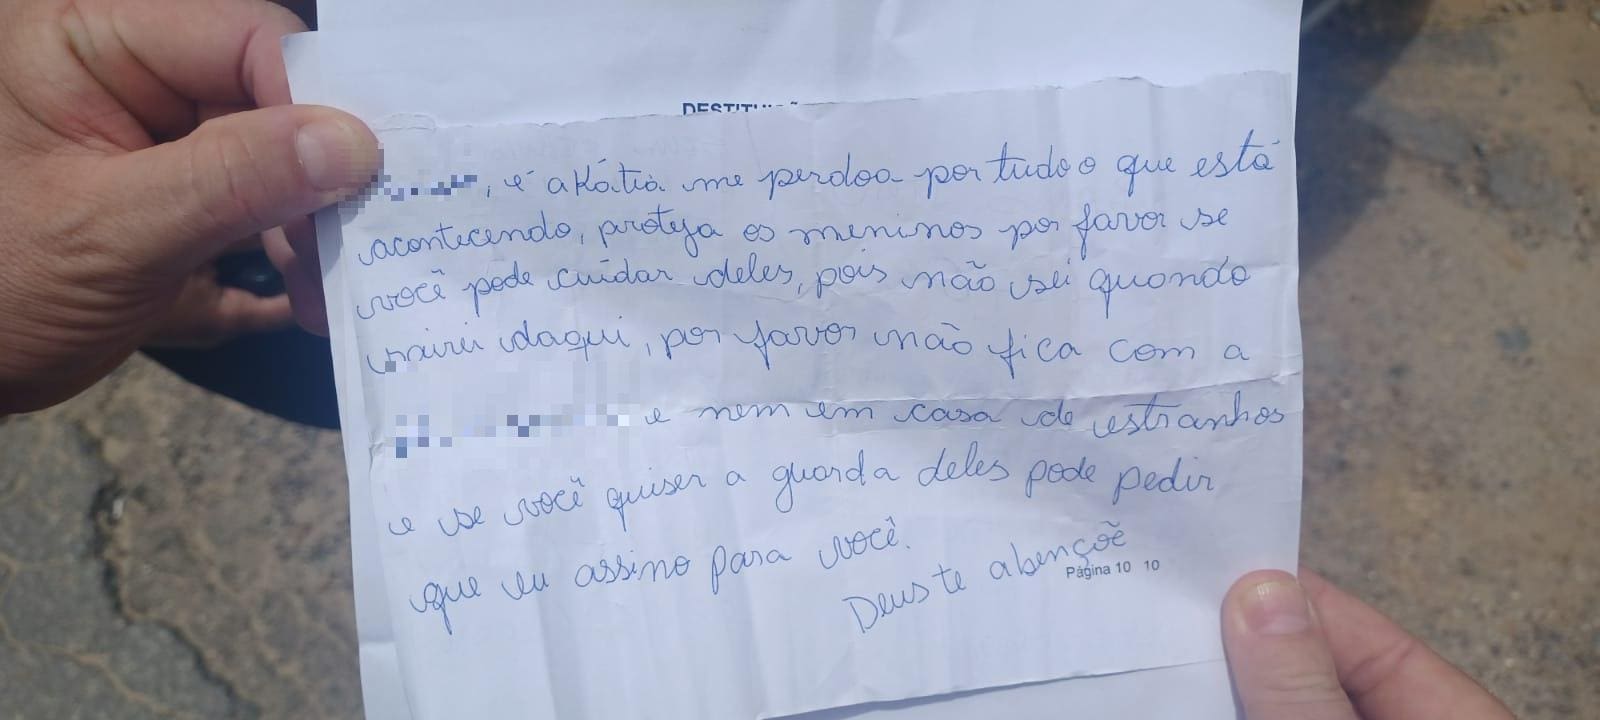 , é a Kátia me perdoa por tudo o que está
acontecendo, proteja os meninos por favor se
você pode cuidar deles, pois não sei quando
sairei daqui, por favor não fica com a
e nem em casa de estranhos
e se você quiser a guarda deles pode pedir
que eu assino para você.
Deus te abençõe
Página 10 10